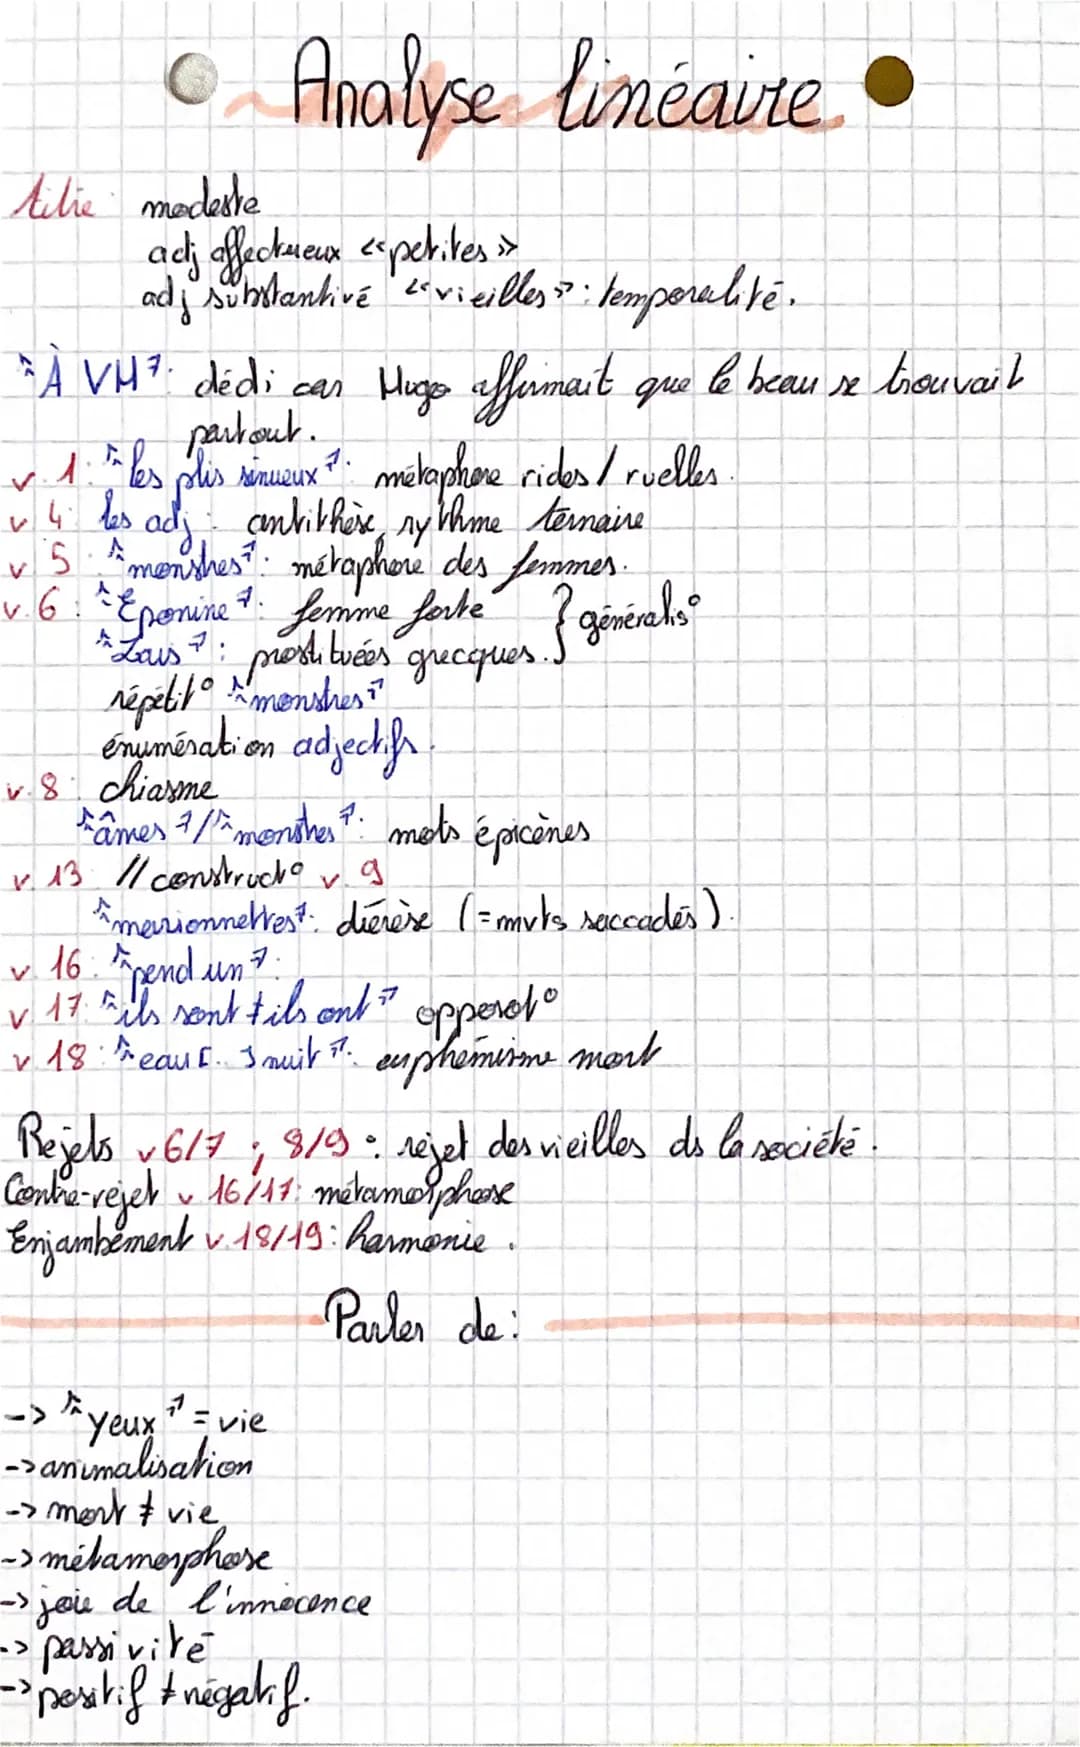 Analyse linéaire
titre : modeste
adj affectueux <<petites>>
adj substantivé "vieilles" : temporalité.
"À VH" : dédi car Hugo affirmait que le beau se trouvait
partout.
v. 1 : "les plis sinueux" : métaphore rides / ruelles.
v 4 : les adj : antithèse, rythme ternaire
v 5 : "monstres" : métaphore des femmes.
v. 6 : "Éponine" : femme forte } généralis°
"Laïs" : prostituées grecques.
répétit° "monstres"
énumération adjectifs.
v. 8 : chiasme
"âmes"/"monstres" : mots épicènes
v. 13 // construct° v. 9
"marionnettes" : diérèse (=mvts saccadés).
v. 16 : "pend un" :
v. 17 : "ils sont ≠ ils ont" opposit°
v. 18 : "eau [..] nuit" : euphémisme mort
Rejets v 6/7 ; 8/9 : rejet des vieilles ds la société.
Contre-rejet v 16/17 : métamorphose
Enjambement v. 18/19 : harmonie.
Parler de :
-> "yeux" = vie
-> animalisation
-> mort ≠ vie
-> métamorphose
-> joie de l'innocence
-> passivité
-> positif ≠ négatif.